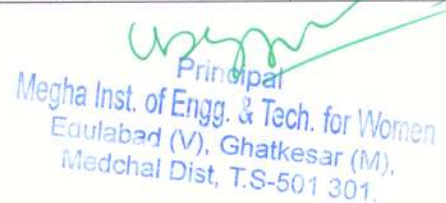 Principal
Megha Inst. of Engg. & Tech. for Women
Edulabad (V), Ghatkesar (M),
Medchal Dist, T.S-501 301.